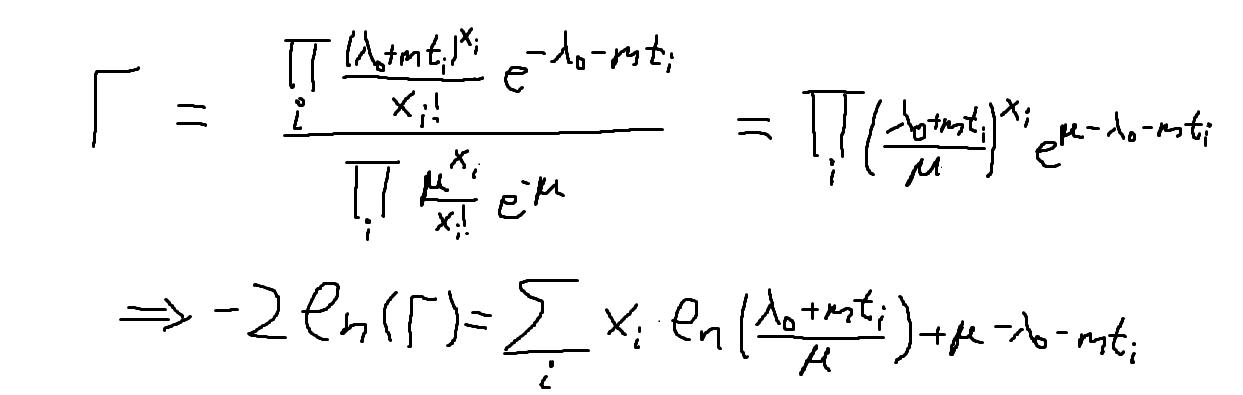 Γ = \frac{\prod_i \frac{(λ_0+mt_i)^{x_i}}{x_i!} e^{-λ_0-mt_i}}{\prod_i \frac{μ^{x_i}}{x_i!} e^{-μ}} = \prod_i \left(\frac{λ_0+mt_i}{μ}\right)^{x_i} e^{μ-λ_0-mt_i}
⇒ -2 ln(Γ) = \sum_i x_i ln\left(\frac{λ_0+mt_i}{μ}\right) + μ - λ_0 - mt_i